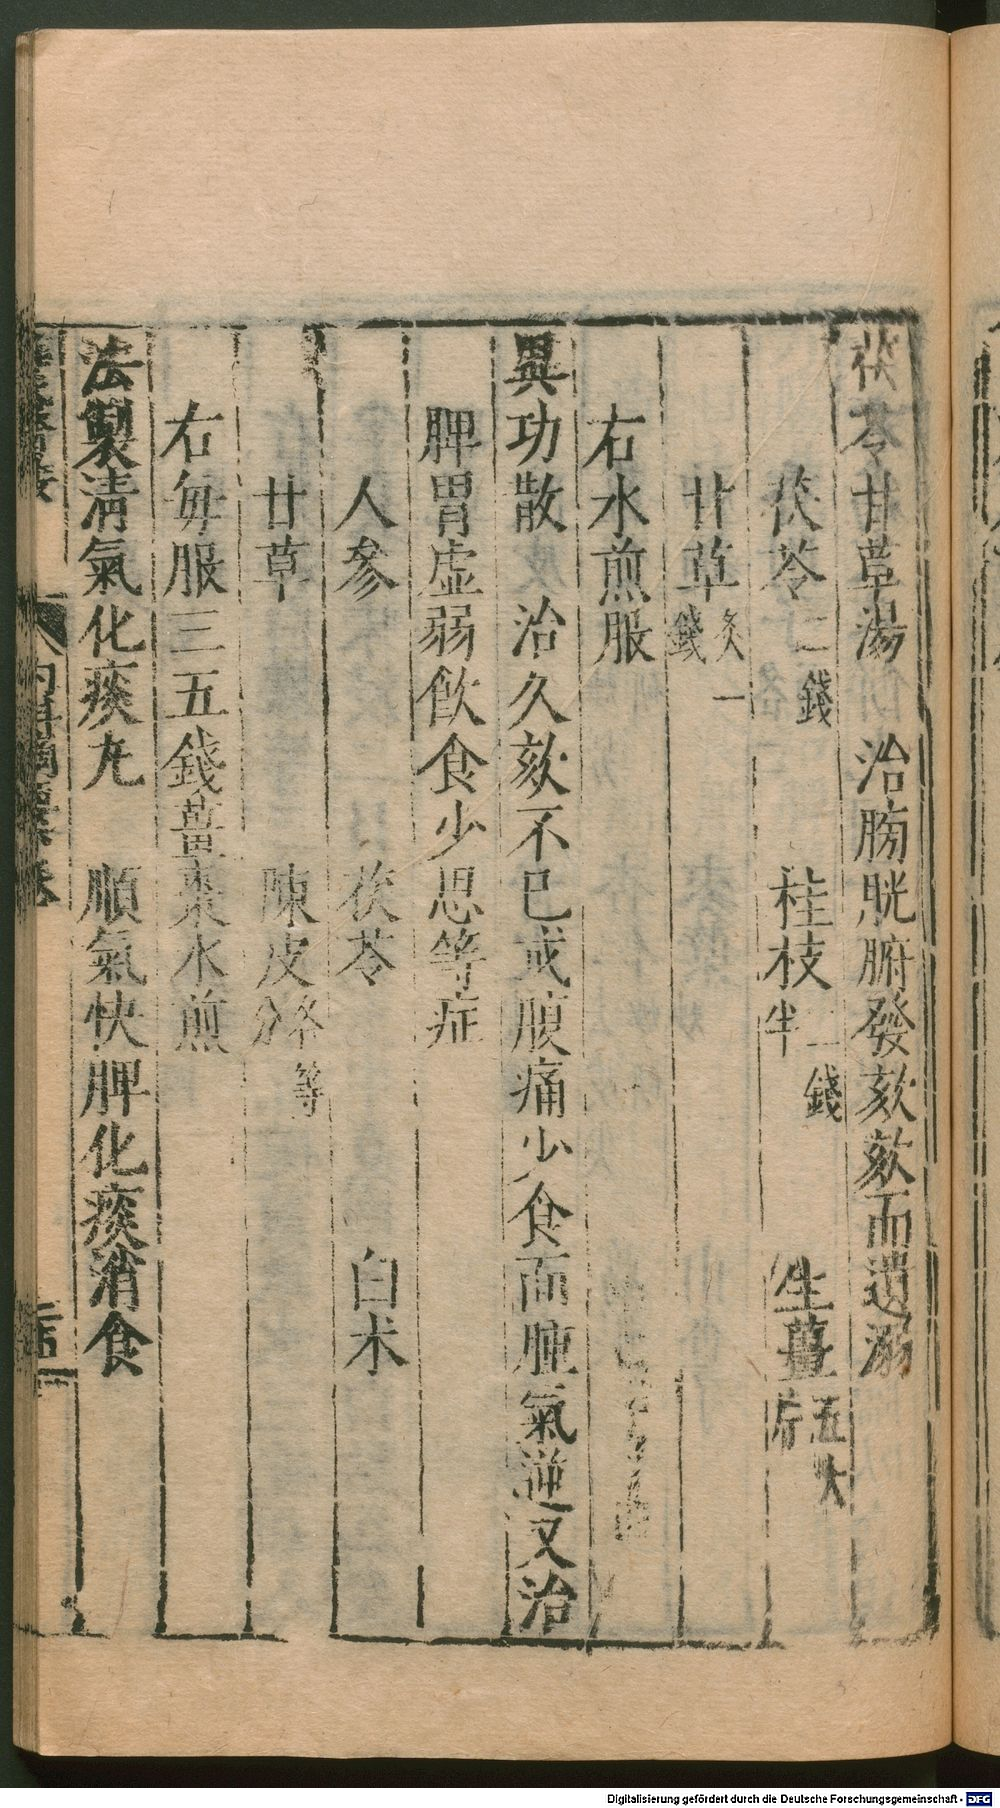 茯苓甘草湯　治膀胱腑發欬欬而遺溺
茯苓二錢　桂枝二錢半　生薑五大片
甘草炙一錢
右水煎服
異功散　治久欬不已或腹痛少食面腫氣逆又治
脾胃虛弱飲食少思等症
人參　茯苓　白术
甘草　陳皮各等分
右每服三五錢薑棗水煎
法製清氣化痰丸　順氣快脾化痰消食
Digitalisierung gefördert durch die Deutsche Forschungsgemeinschaft - DFG